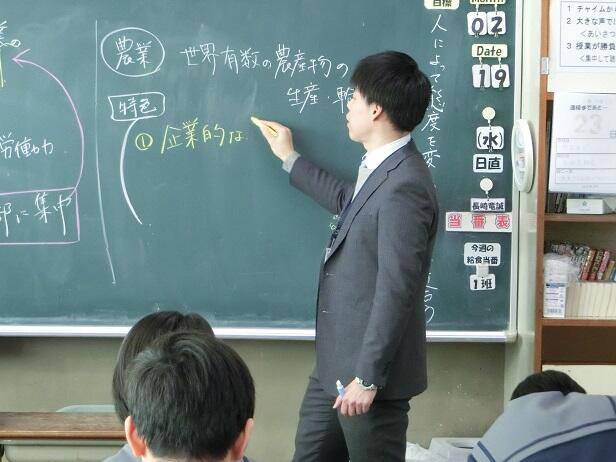 労働力
部に集中
農業
世界有数の農産物の
生産
特色
① 企業的な
人によって態度を変
目標
Month
02
Date
19
(水)
日直
長崎竜誠
当番表
今週の
給食当番
1班
1 チャイムか
2 大きな声で
＜あいさつ
3 授業が勝負
＜集中して聴
23